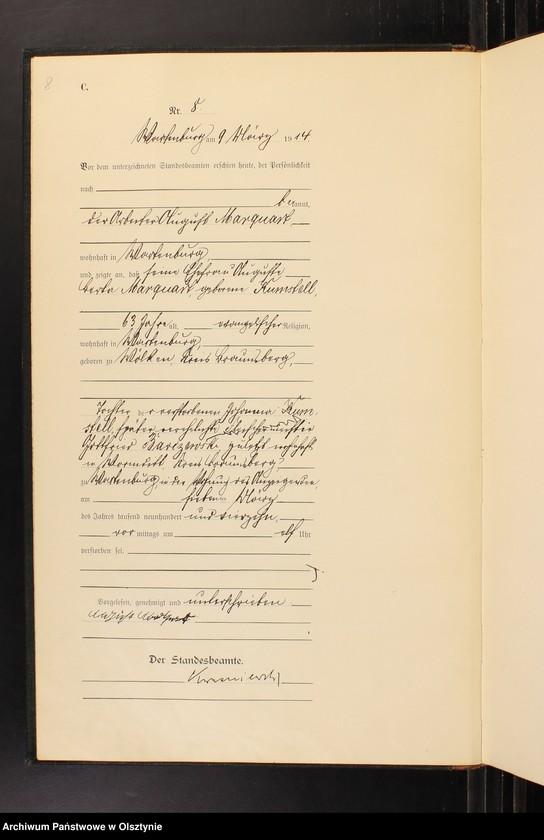 8
C.
Nr. 8.
Wartenburg am 9 März 1914.
Vor dem unterzeichneten Standesbeamten erschien heute, der Persönlichkeit
nach
bekannt,
der Arbeiter August Marquart,
wohnhaft in Wartenburg,
und zeigte an, daß seine Ehefrau Auguste
Berta Marquart, geborene Kumstell,
63 Jahre alt, evangelischer Religion,
wohnhaft in Wartenburg,
geboren zu Wölken, Kreis Braunsberg,
Tochter der verstorbenen Johanna Kum-
stell, später verehelichte
zuletzt wohnhaft
in Wormditt Kreis Braunsberg,
zu Wartenburg, in der Wohnung des Anzeigenden
am sieben März
des Jahres tausend neunhundert und vierzehn,
vor mittags um elf Uhr
verstorben sei.
Vorgelesen, genehmigt und unterschrieben
Der Standesbeamte.
Archiwum Państwowe w Olsztynie